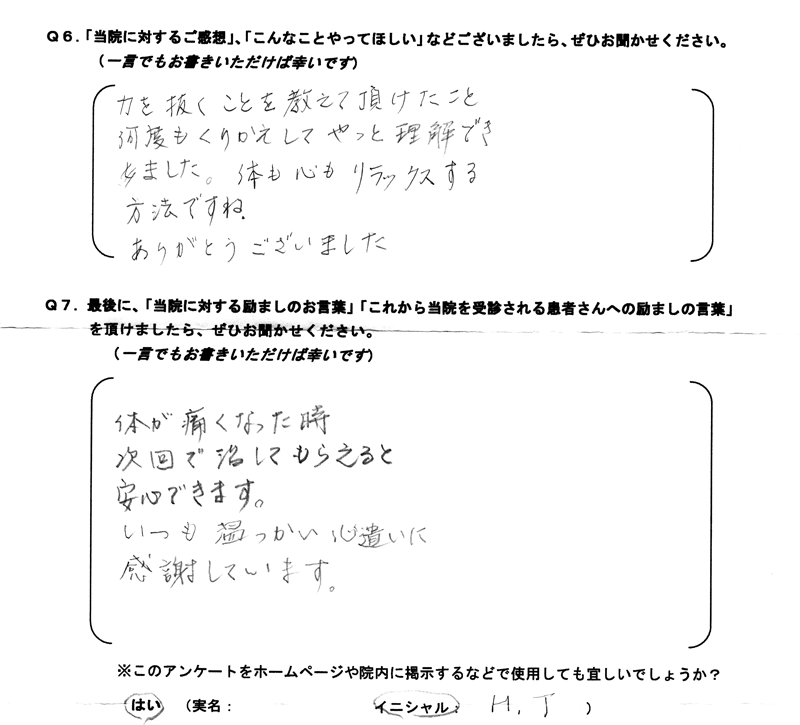 Q6.「当院に対するご感想」、「こんなことやってほしい」などございましたら、ぜひお聞かせください。
（一言でもお書きいただけば幸いです）
力を抜くことを教えて頂けたこと
何度もくりかえして やっと理解でき
ました。体も心も リラックスする
方法ですね.
ありがとうございました
Q7. 最後に、「当院に対する励ましのお言葉」「これから当院を受診される患者さんへの励ましの言葉」
を頂けましたら、ぜひお聞かせください。
（一言でもお書きいただけば幸いです）
体が痛くなった時
次回で治してもらえると
安心できます。
いつも温っかい心遣いに
感謝しています。
※このアンケートをホームページや院内に掲示するなどで使用しても宜しいでしょうか？
はい （実名： イニシャル： H. J ）